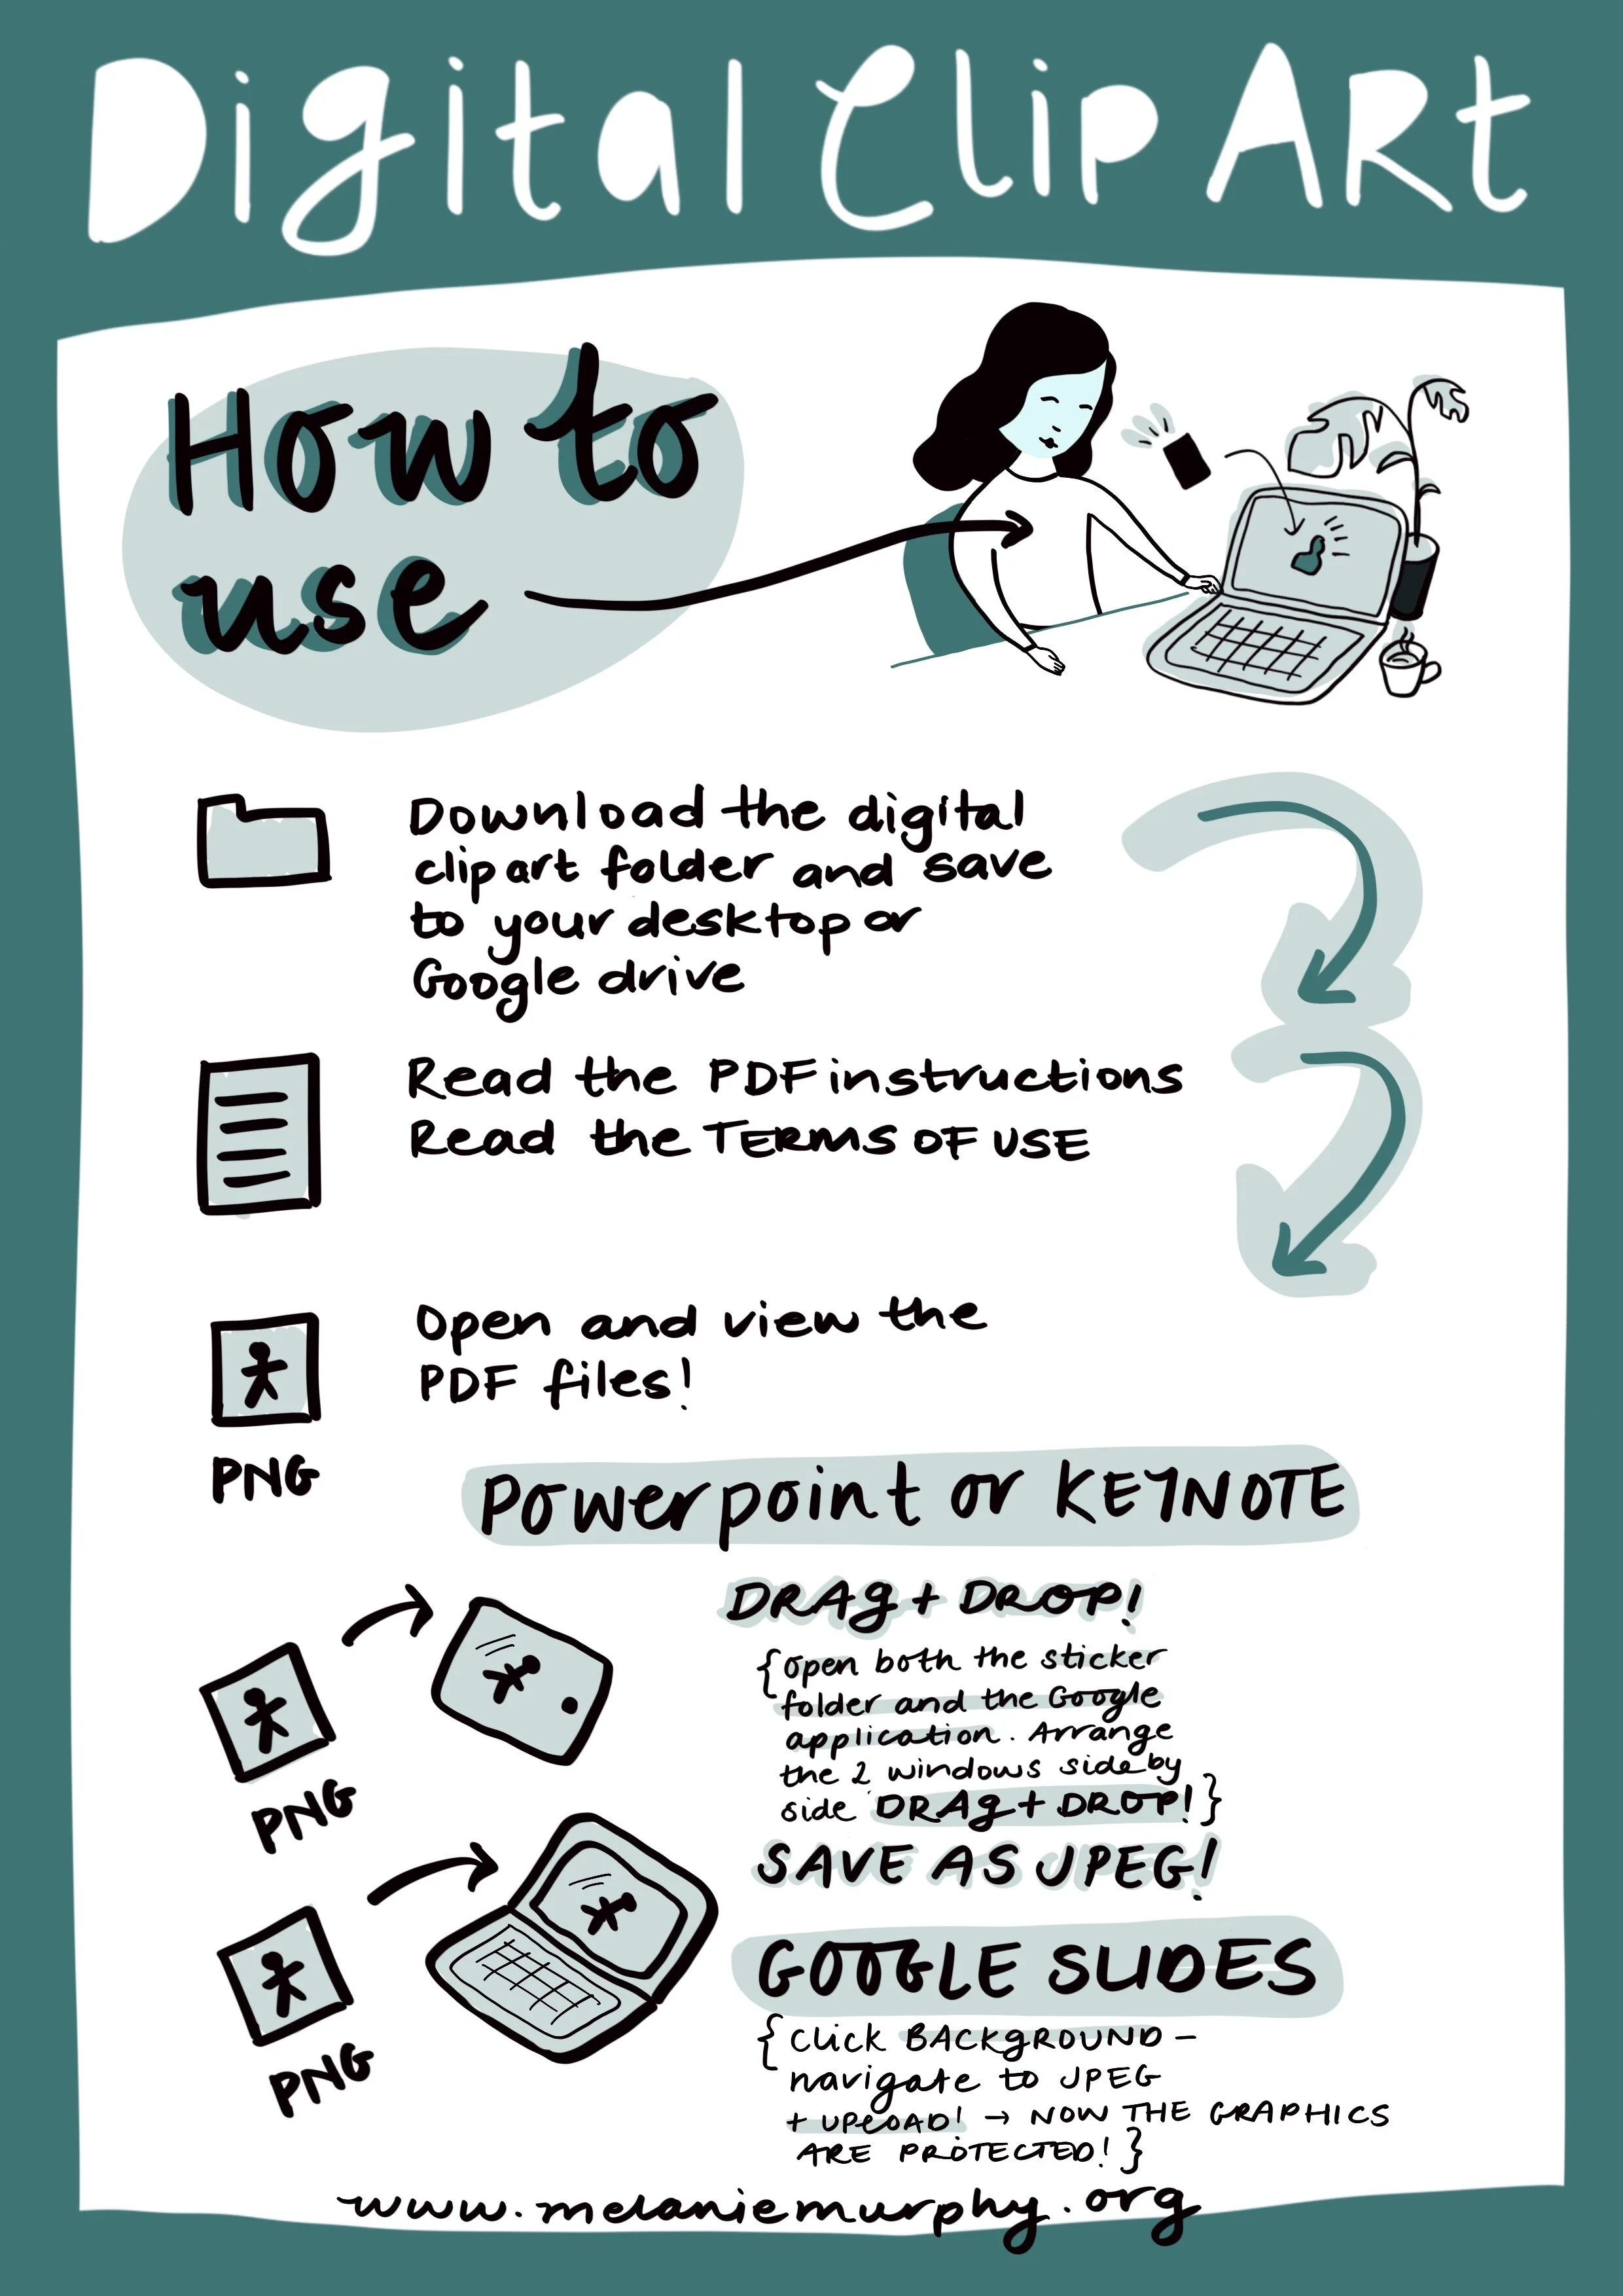 Digital Clip Art
How to
use
Download the digital
clip art folder and save
to your desktop or
Google drive
Read the PDF instructions
Read the TERMS OF USE
Open and view the
PDF files!
PNG
Powerpoint or KEYNOTE
DRAg + DROP!
{open both the sticker
folder and the Google
application. Arrange
the 2 windows side by
side DRAg + DROP!}
PNG
SAVE AS JPEG!
PNG
GOOGLE SLIDES
{click BACKgROUND –
navigate to JPEG
+ UPLOAD! → NOW THE GRAPHICS
ARE PROTECTED!}
www.melaniemurphy.org